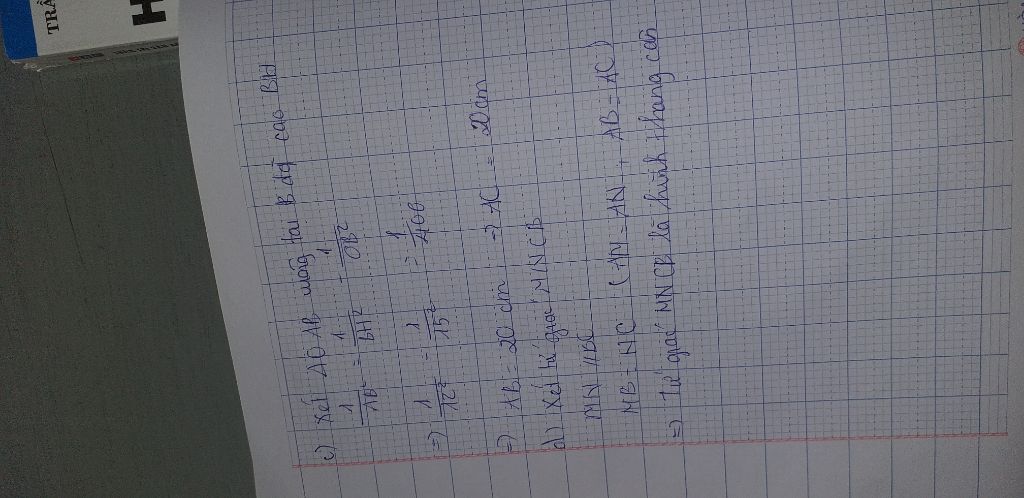 TRẦ
H
c) Xét ΔOAB vuông tại B đg cao BH
1/AB² = 1/BH² - 1/OB²
=> 1/12² - 1/15² = 1/400
=> AB = 20 cm => AC = 20cm
d) Xét tứ giác MNCB
MN // BC
MB = NC (AM = AN, AB = AC)
=> Tứ giác MNCB là hình thang cân